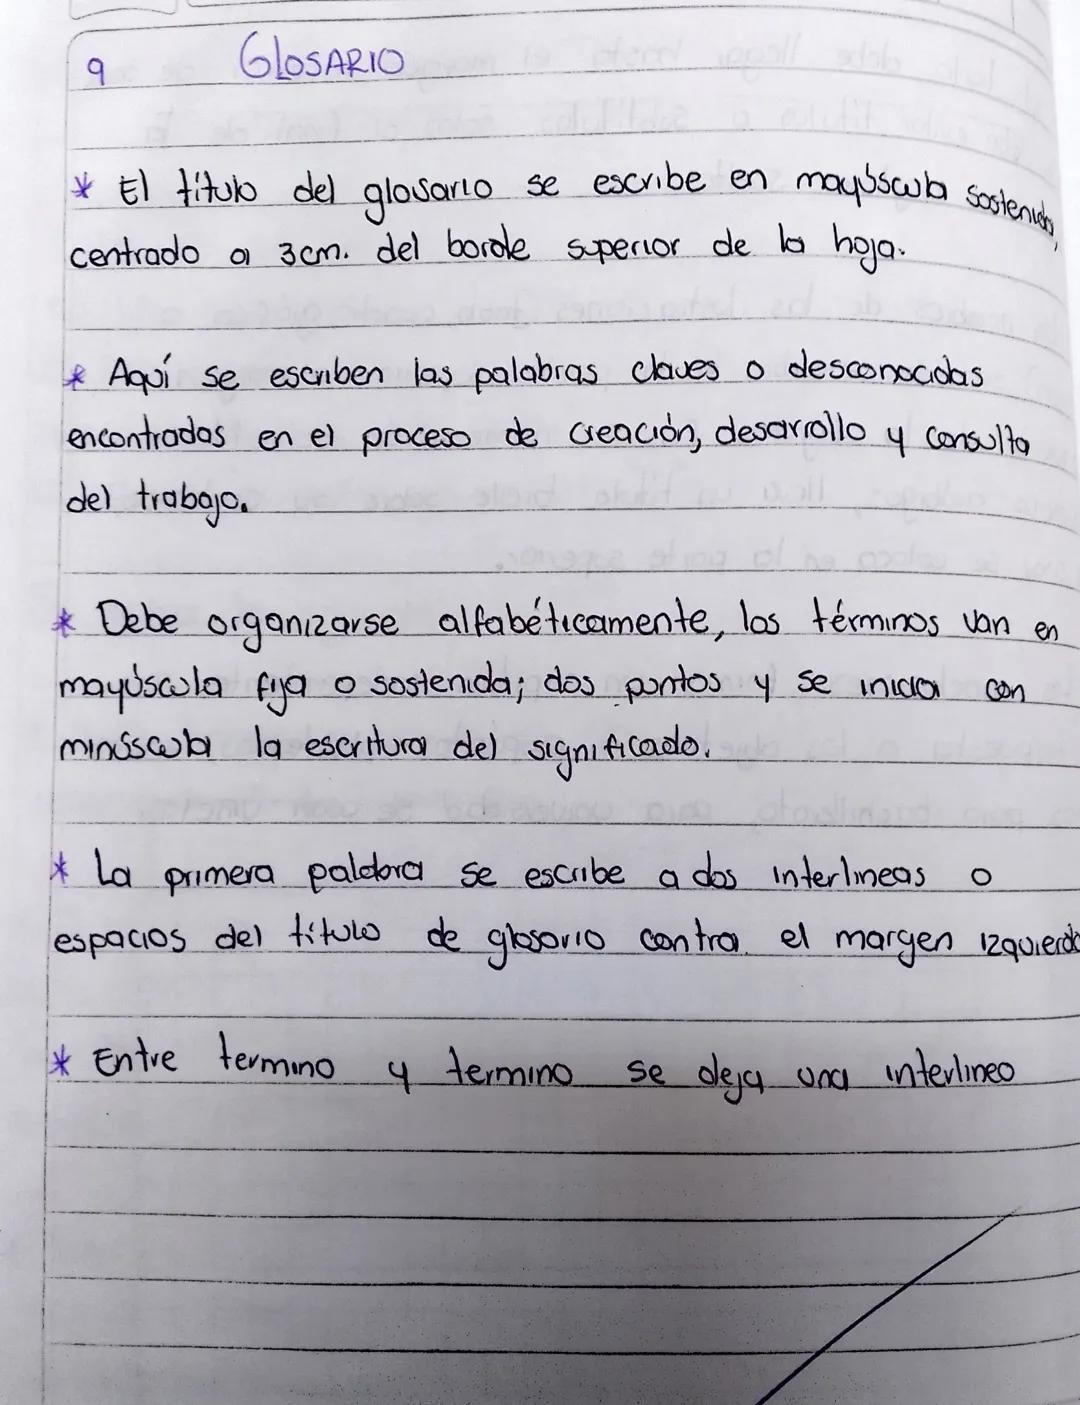 9 GLOSARIO
* El título del glosario se escribe en mayúscula sostenida,
centrado a 3cm. del borde superior de la hoja.
* Aquí se escriben las palabras claves o desconocidas
encontradas en el proceso de creación, desarrollo y consulta
del trabajo.
* Debe organizarse alfabéticamente, los términos van en
mayúscula fija o sostenida; dos puntos y se inicia con
minúscula la escritura del significado.
* La primera palabra se escribe a dos interlineas o
espacios del título de glosario contra el margen izquierdo
* Entre termino y termino se deja una interlineo